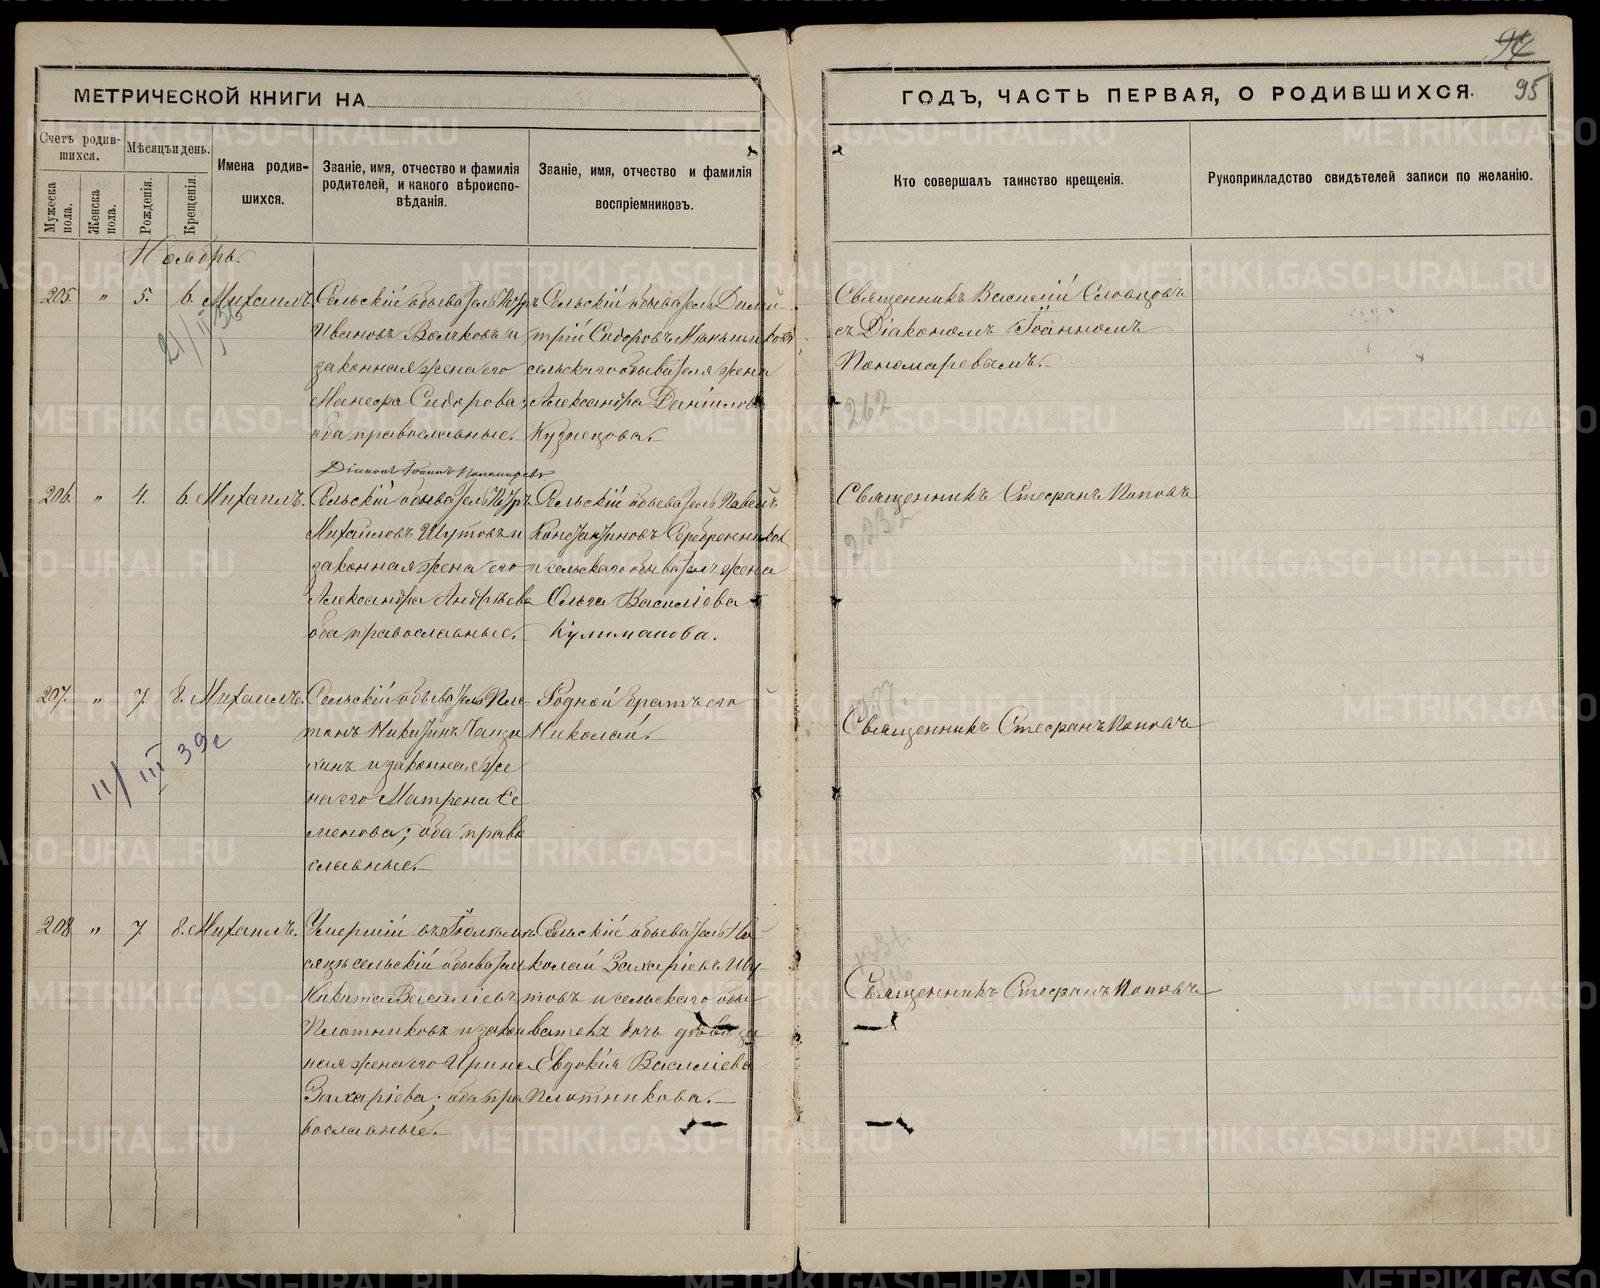 94
95
МЕТРИЧЕСКОЙ КНИГИ НА
ГОДЪ, ЧАСТЬ ПЕРВАЯ, О РОДИВШИХСЯ.
Счетъ родив-
шихся.
Мѣсяцъ и день.
Мужеска
пола.
Женска
пола.
Рожденія.
Крещенія.
Имена родив-
шихся.
Званіе, имя, отчество и фамилія
родителей, и какого вѣроиспо-
вѣданія.
Званіе, имя, отчество и фамилія
воспріемниковъ.
Кто совершалъ таинство крещенія.
Рукоприкладство свидѣтелей записи по желанію.
Ноябрь.
205. " 5. 6. Михаилъ.
Сельскій обыватель Петръ
Ивановъ Волковъ и
законная жена его
Манефа Сидорова;
оба православные.
Сельскій обыватель Дими-
трій Сидоровъ
сельскаго обывателя жена
Александра Даніилова
Кузнецова.
Священникъ Василій Словцовъ
съ Діакономъ Іоанномъ
Пономаревымъ.
262
Діаконъ Іоаннъ Пономаревъ
206. " 4. 6. Михаилъ.
Сельскій обыватель Петръ
Михаиловъ Шутовъ и
законная жена его
Александра Андрѣева
оба православные.
Сельскій обыватель Павелъ
Константиновъ Серебренниковъ
и сельскаго обывателя жена
Ольга Василіева
Кулиманова.
Священникъ Стефанъ Поповъ
2232
207. " 7. 8. Михаилъ.
11/III 39г
Сельскій обыватель Пла-
тонъ Никитинъ
кинъ и законная же
на его Матрена Се
менова; оба право
славные.
Родной братъ его
Николай.
Священникъ Стефанъ Поповъ
208 " 7. 8. Михаилъ.
Умершій въ Іюлѣ мѣ
сяцѣ сельскій обыватель
Никита Василіевъ
Плотниковъ и закон
ная жена его Ирина
Захаріева; оба пра
вославные.
Сельскій обыватель Ни-
колай Захаріевъ Шу-
товъ и сельскаго обы-
вателя дочь дѣвица
Евдокія Василіева
Плотникова.
Священникъ Стефанъ Поповъ
METRIKI.GASO-URAL.RU